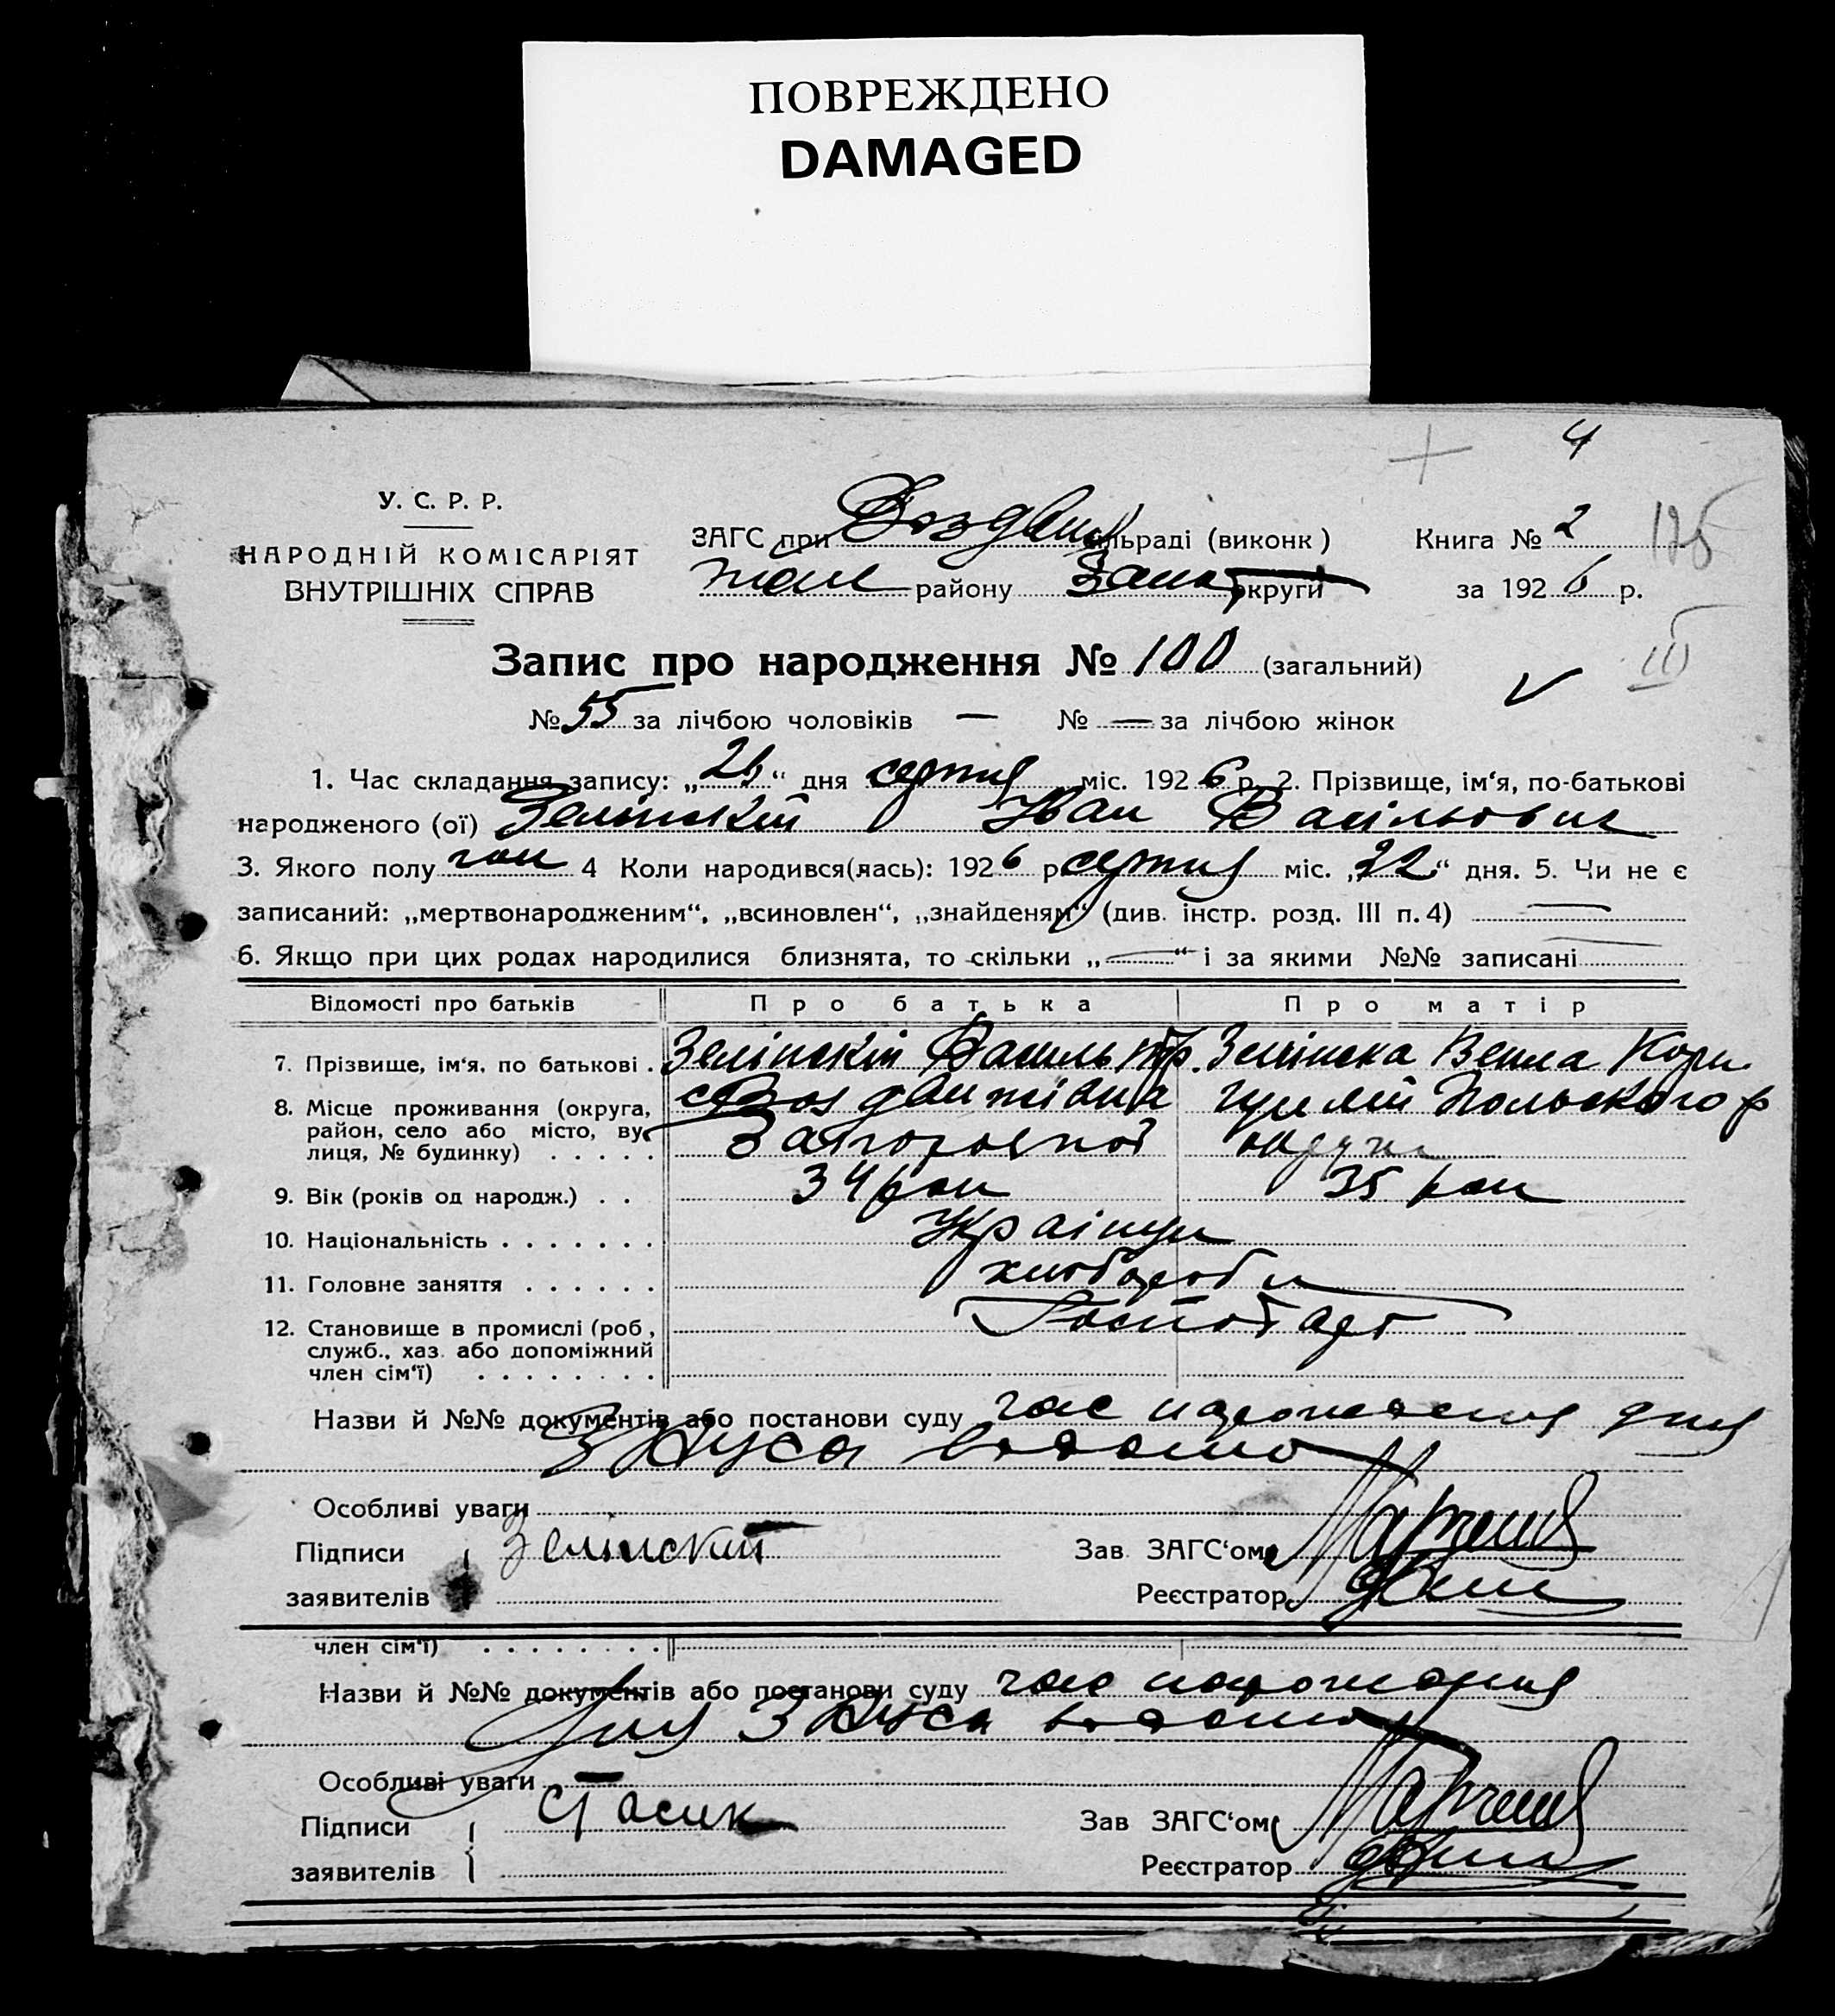 ПОВРЕЖДЕНО
DAMAGED
4
У. С. Р. Р.
НАРОДНІЙ КОМІСАРІЯТ
ВНУТРІШНІХ СПРАВ
ЗАГС при Воздвиж ільраді (виконк )
району Запор округи
Книга № 2
за 1926 р.
Запис про народження № 100 (загальний)
№ 55 за лічбою чоловіків — № — за лічбою жінок
1. Час складання запису: „26“ дня серпня міс. 1926 р. 2. Прізвище, ім‘я, по-батькові
народженого (ої) Зелінский Іван Васільович
3. Якого полу чол 4 Коли народився(лась): 1926 р серпня міс. „22“ дня. 5. Чи не є
записаний: „мертвонародженим“, „всиновлен“, „знайденям“ (див. інстр. розд. III п. 4) —
6. Якщо при цих родах народилися близнята, то скільки „—“ і за якими №№ записані
Відомості про батьків Про батька Про матір
7. Прізвище, ім‘я, по батькові . Зелінский Василь Зелінска Корн.
8. Місце проживання (округа,
район, село або місто, ву-
лиця, № будинку) . . . . . Запорожної округи
9. Вік (років од народж.) . . 34 рок 35 рок
10. Національність . . . . . . . Українци
11. Головне заняття . . . . . . хлібороби
12. Становище в промислі (роб ,
служб., хаз. або допоміжний
член сім‘ї) . . . . . . . .
Назви й №№ документів або постанови суду час народження дня
Особливі уваги
Підписи Зелінский Зав. ЗАГС‘ом
заявителів Реєстратор
член сім‘ї) . . . . . . . .
Назви й №№ документів або постанови суду час народження
Особливі уваги —
Підписи Стасик Зав ЗАГС‘ом
заявителів Реєстратор